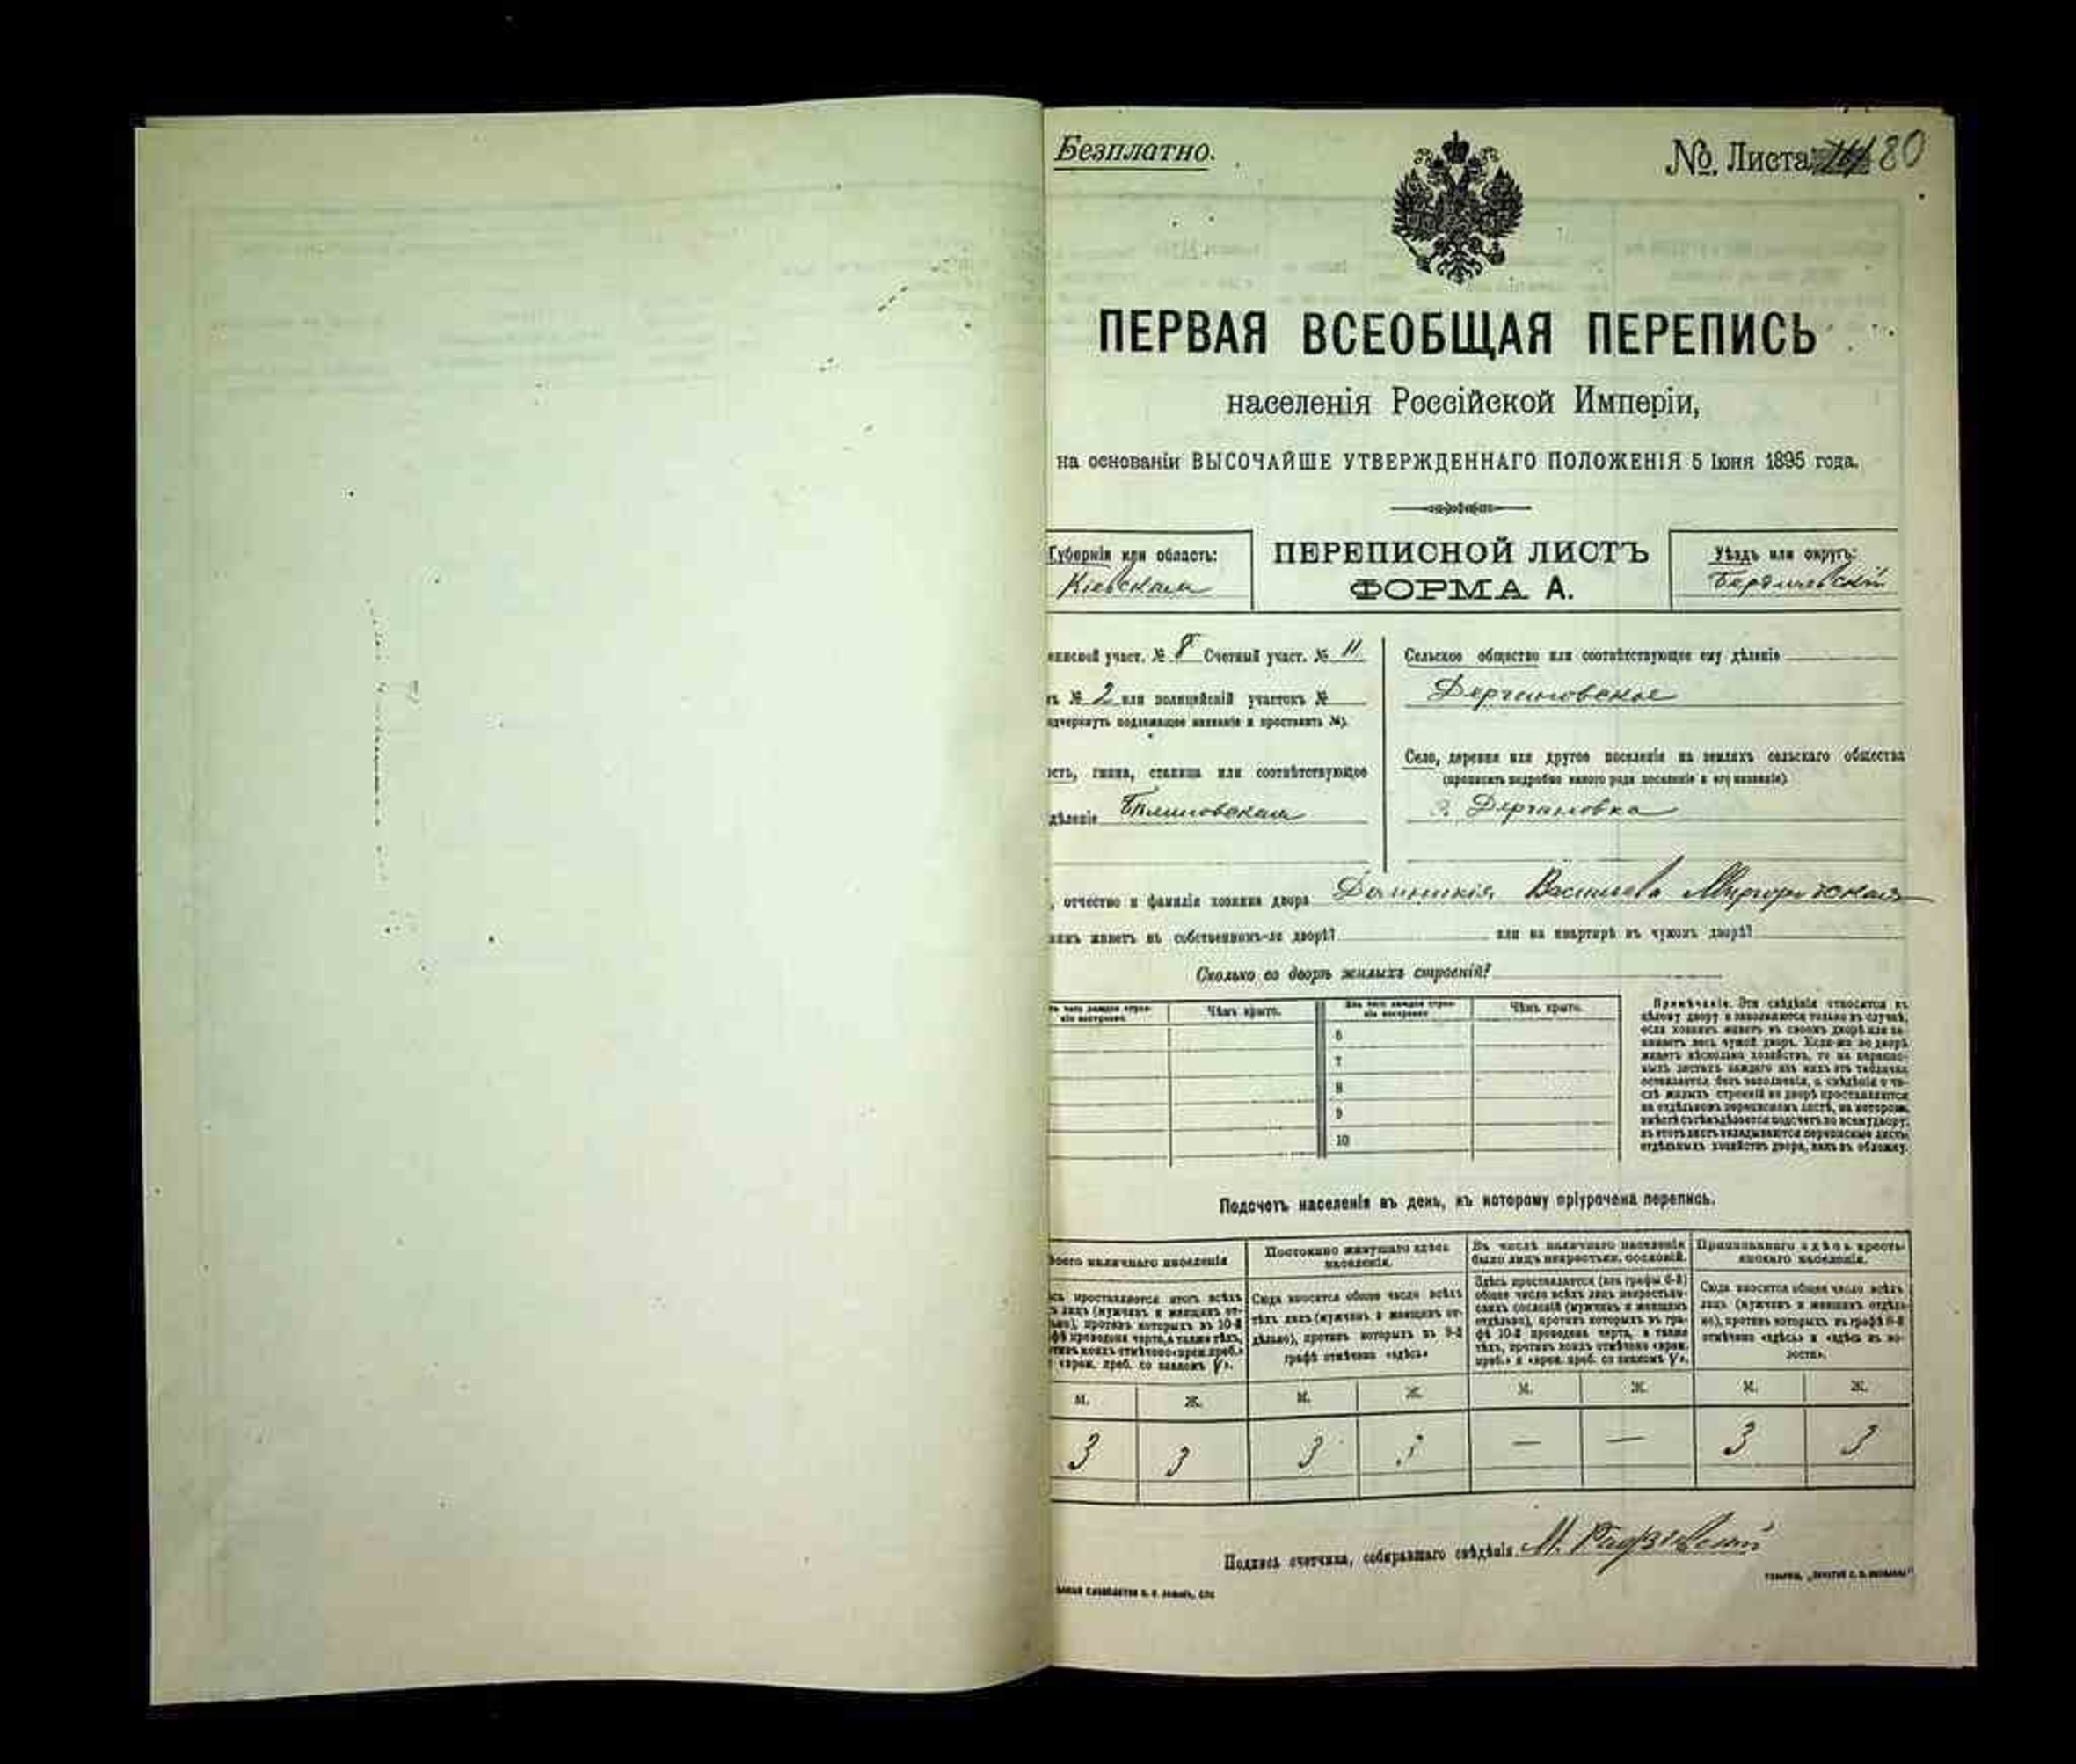 Безплатно.
№. Листа 80
ПЕРВАЯ ВСЕОБЩАЯ ПЕРЕПИСЬ
населенія Россійской Имперіи,
на основаніи ВЫСОЧАЙШЕ УТВЕРЖДЕННАГО ПОЛОЖЕНІЯ 5 Іюня 1895 года.
Губернія или область:
Кіевская
ПЕРЕПИСНОЙ ЛИСТЪ
ФОРМА А.
Уѣздъ или округъ:
Бердичевскій
писной участ. № 8 Счетный участ. № 11
ъ № 2 или полицейскій участокъ №
дчеркнуть подлежащее названіе и проставить №).
ость, гмина, станица или соотвѣтствующее
дѣленіе
Сельское общество или соотвѣтствующее ему дѣленіе
Дергановское
Село, деревня или другое поселеніе на земляхъ сельскаго общества
(прописать подробно какого рода поселеніе и его названіе)
Дергановка
, отчество и фамилія хозяина двора Доминикія Васильева Миргородская
инъ живетъ въ собственномъ-ли дворѣ? или на квартирѣ въ чужомъ дворѣ?
Сколько во дворѣ жилыхъ строеній?
ъ чего каждое строе-
ніе построено.
Чѣмъ крыто.
Изъ чего каждое строе-
ніе построено
Чѣмъ крыто.
6
7
8
9
10
Примѣчаніе. Эти свѣдѣнія относятся къ
цѣлому двору и заполняются только въ случаѣ,
если хозяинъ живетъ въ своемъ дворѣ или за-
нимаетъ весь чужой дворъ. Если-же во дворѣ
живетъ нѣсколько хозяйствъ, то на перепис-
ныхъ листахъ каждаго изъ нихъ эта табличка
оставляется безъ заполненія, а свѣдѣнія о чи-
слѣ жилыхъ строеній во дворѣ проставляются
на отдѣльномъ переписномъ листѣ, на которомъ
вмѣстѣ съ тѣмъ дѣлается подсчетъ по всему двору;
въ этотъ листъ вкладываются переписные листы
отдѣльныхъ хозяйствъ двора, какъ въ обложку.
Подсчетъ населенія въ день, къ которому пріурочена перепись.
Всего наличнаго населенія
сь проставляется итогъ всѣхъ
ъ лицъ (мужчинъ и женщинъ от-
ьно), противъ которыхъ въ 10-й
фѣ проведена черта, а также тѣхъ,
тивъ коихъ отмѣчено «врем. преб.»
«врем. преб. со знакомъ V».
Постоянно живущаго здѣсь
населенія.
Сюда вносится общее число всѣхъ
тѣхъ лицъ (мужчинъ и женщинъ от-
дѣльно), противъ которыхъ въ 9-й
графѣ отмѣчено «здѣсь»
Въ числѣ наличнаго населенія
было лицъ некрестьян. сословій.
Здѣсь проставляется (изъ графы 6-й)
общее число всѣхъ лицъ некрестьян-
скихъ сословій (мужчинъ и женщинъ
отдѣльно), противъ которыхъ въ гра-
фѣ 10-й проведена черта, а также
тѣхъ, противъ коихъ отмѣчено «врем.
преб.» и «врем. преб. со знакомъ V».
Приписаннаго здѣсь кресть-
янскаго населенія.
Сюда вносится общее число всѣхъ
лицъ (мужчинъ и женщинъ отдѣль-
но), противъ которыхъ въ графѣ 8-й
отмѣчено «здѣсь» и «здѣсь въ во-
лости».
М. Ж. М. Ж. М. Ж. М. Ж.
3 3 3 3 — — 3 3
Подпись счетчика, собиравшаго свѣдѣнія